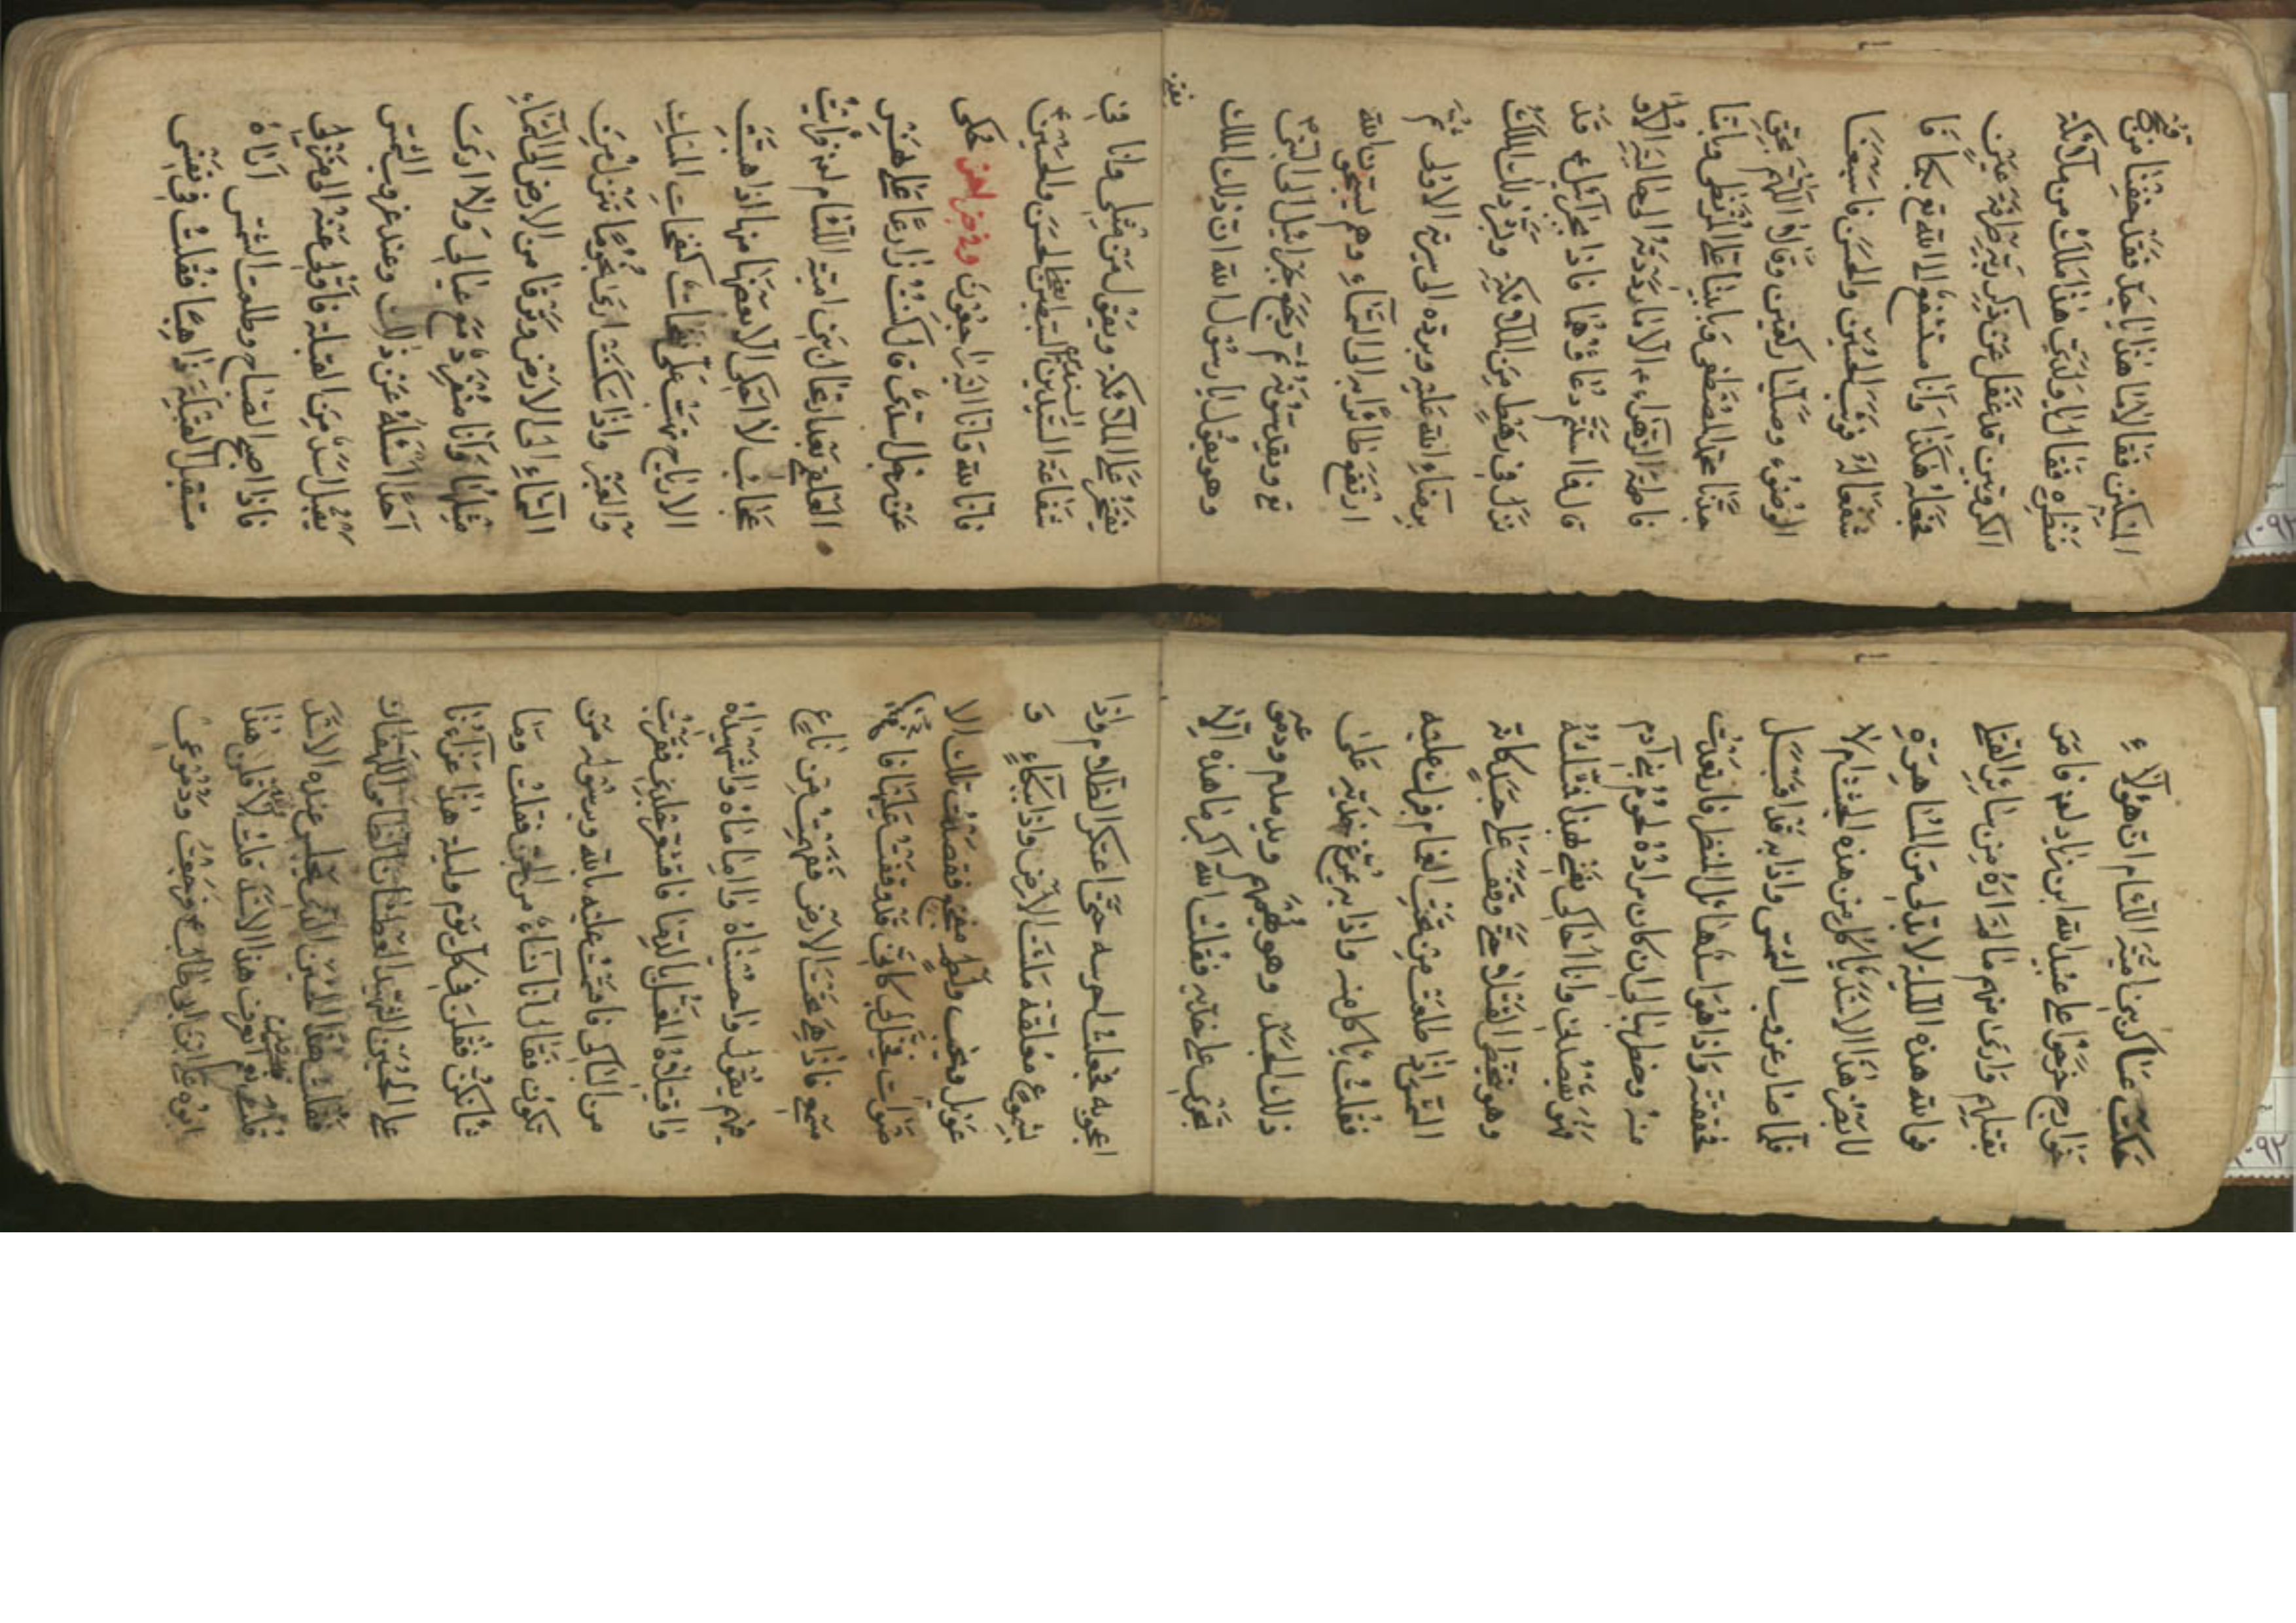 المسكين فقالا ما هذا يا جد فقد خفنا من قبح
منظره فقال يا ولدي هذا ملك من ملائكة
الكروبين قد غفل عن ذكر ربه طرفة عين
فجعله هكذا وانا مستشفع الى الله تع بكما فا
شفعا له فوثب الحسين والحسن فاسبغا
الوضوء وصليا ركعتين وقالا اللهم بحق
جدنا محمد المصطفى وبابينا علي المرتضى وبامنا
فاطمة الزهراء الا ما رددته الى حالته الاولى
قال فما استتم دعاؤهما فاذا بجبرائيل قد
نزل في رهط من الملائكة وبشر ذلك الملك
برضاء الله عليه وبرده الى سيرته الاولى ثم
ارتفعوا به الى السماء وهم يسبحون الله
تع ويقدسونه ثم رجع جبرائيل الى النبي ص
وهو يقول يا رسول الله ان ذلك الملك
يفتخر
يفتخر على الملائكة ويقول من مثلي وانا في
شفاعة السيدين السبطين الحسن والحسين
فانا لله وانا اليه راجعون وفي خبر اخر حكى
عن رجل اسدي قال كنت زارعا على نهر
العلقمي بعد ارتحال بني امية اللئام لعنه فرايت
عجائب لا احكي الا بعضها منها اذا هبت
الارياح تهب علي نفحات كنفحات المسك
والعنبر واذا سكنت ارى نجوما تنزل من
السماء الى الارض وترقا من الارض الى السماء
مثلها وانا منفرد مع عيالي ولا ارى
احدا اسئله عن ذلك وعند غروب الشمس
يقبل اسد من القبلة فاولى عنه الى منزلي
فاذا اصبح الصباح وطلعت الشمس اراه
مستقبل القبلة ذاهبا فقلت في نفسي
حكت عساكر بني امية اللئام ان هؤلاء
خوارج خرجوا على عبيد الله ابن زياد لعنه فامر
بقتلهم وارى منهم ما لم اراه من سائر القتلى
فوالله هذه الليلة لا بد لي من المساهرة
لابصر هذا الاسد ياكل من هذه الجثث ام لا
فلما صار غروب الشمس واذا به قد اقبل
فحققته واذا هو اسد هائل المنظر فارتعدت
منه وخطر ببالي ان كان مراده لحوم بني آدم
فهو يقصدني وانا احاكي نفسي بهذا فمثلته
وهو يتخطى القتلى حتى وقف على جسد كانه
الشمس اذا طلعت من تحت الغمام فبرك عليه
فقلت ياكل منه واذا به يمرغ خديه على
ذلك الجسد وهو يهمهم ويدمدم ودموعه
تجري على خديه فقلت الله اكبر ما هذه الا
اعجوبه فجعلت احرسه حتى اعتكر الظلام واذا
بشموع معلقة ملئت الارض واذا ببكاء و
عويل ونحيب ولطم مفجع فقصدت تلك الا
صوات
سمع فاذا هي تحت الارض ففهمت من ناع
فيهم يقول واحسيناه واماماه واشهيداه
واقتيلاه فاقشعر جلدي فقربت
من الباكي فاقسمت عليه بالله وبرسوله من
تكون فقال انا نساء من الجن فقلت وما
شانكن فقلن في كل يوم وليلة هذا عزاءنا
على الحسين الشهيد العطشان الظامي اللهفان
فقلت هذا الحسين الذي يجلس عنده الاسد
قلن نعم اتعرف هذا الاسد قلت لا قلن هذا
ابوه علي ابن ابي طالب ع فرجعت ودموعي